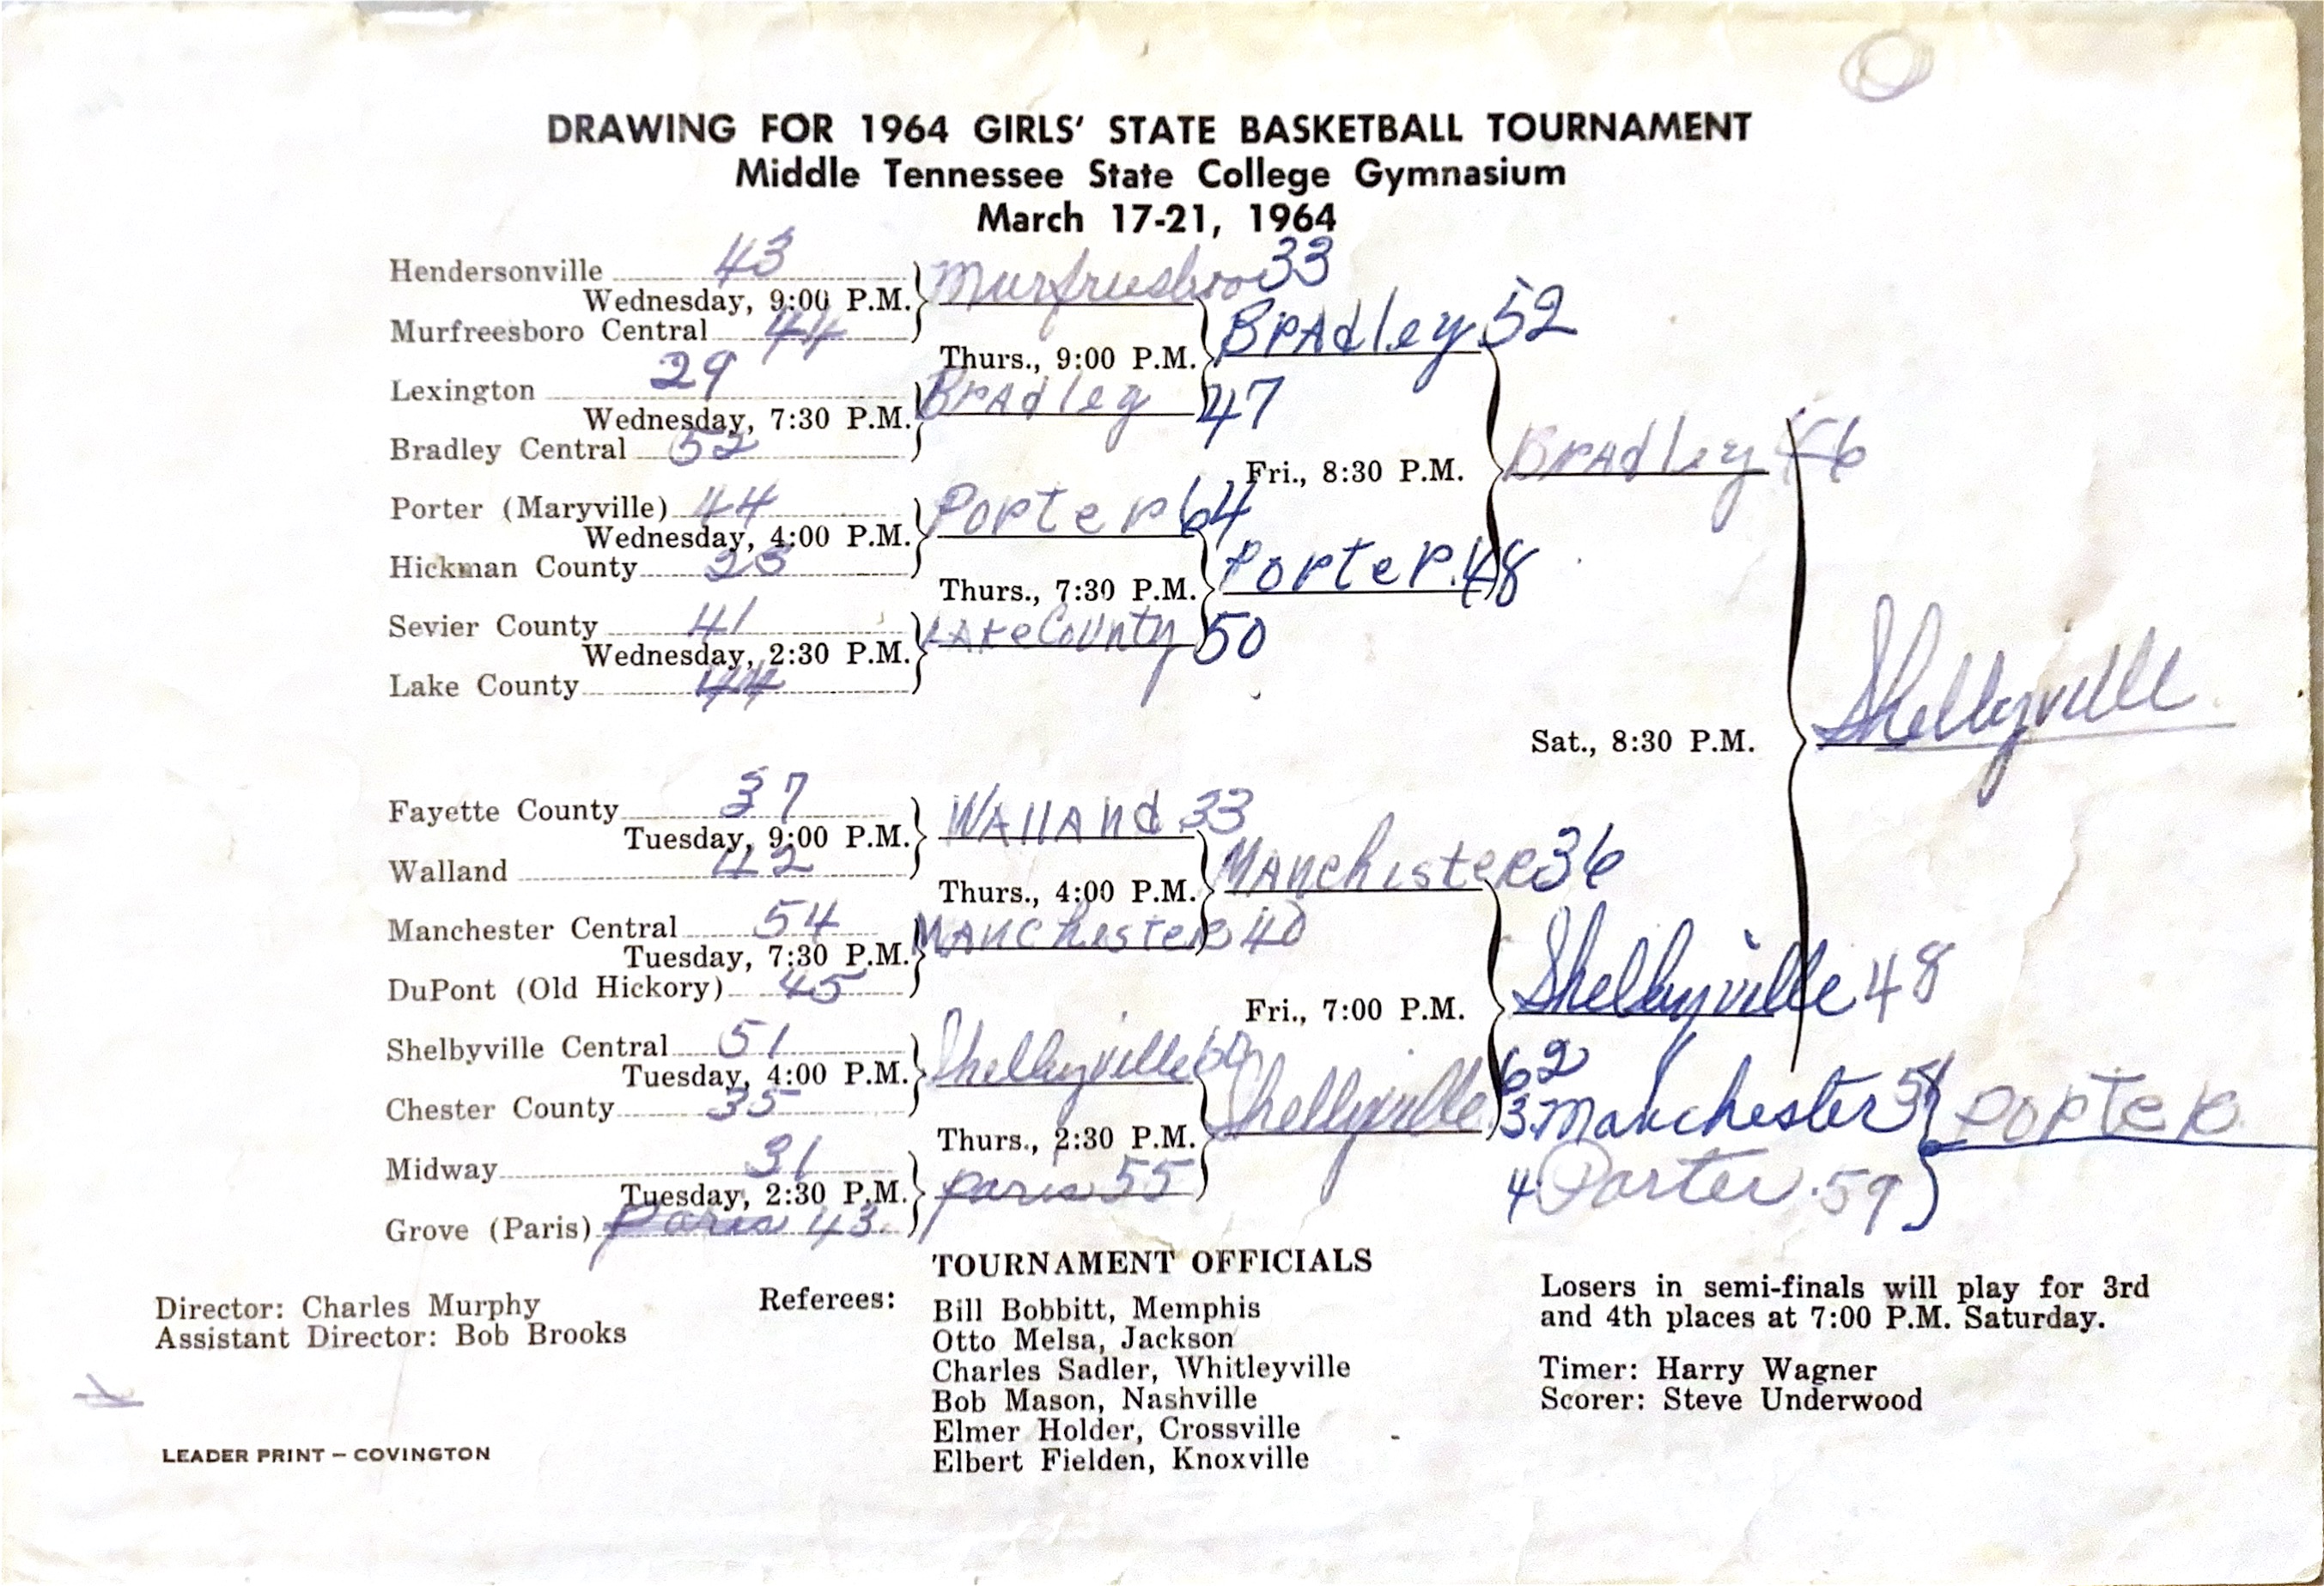 DRAWING FOR 1964 GIRLS' STATE BASKETBALL TOURNAMENT
Middle Tennessee State College Gymnasium
March 17-21, 1964
Hendersonville 43
Wednesday, 9:00 P.M.
Murfreesboro Central 44
Lexington 29
Wednesday, 7:30 P.M.
Bradley Central 52
Porter (Maryville) 44
Wednesday, 4:00 P.M.
Hickman County 23
Sevier County 41
Wednesday, 2:30 P.M.
Lake County 44
Fayette County 37
Tuesday, 9:00 P.M.
Walland 42
Manchester Central 54
Tuesday, 7:30 P.M.
DuPont (Old Hickory) 45
Shelbyville Central 51
Tuesday, 4:00 P.M.
Chester County 35
Midway 31
Tuesday, 2:30 P.M.
Grove (Paris) Paris 43
Murfreesboro 33
Thurs., 9:00 P.M.
Bradley 47
Porter 64
Thurs., 7:30 P.M.
Lake County 50
Walland 33
Thurs., 4:00 P.M.
Manchester 40
Shelbyville
Thurs., 2:30 P.M.
Paris 55
Bradley 52
Fri., 8:30 P.M.
Porter 48
Manchester 36
Fri., 7:00 P.M.
Shelbyville 62
Bradley 46
Sat., 8:30 P.M.
Shelbyville 48
Shelbyville
3. Manchester
4 Porter 59
Porter
TOURNAMENT OFFICIALS
Director: Charles Murphy
Assistant Director: Bob Brooks
Referees:
Bill Bobbitt, Memphis
Otto Melsa, Jackson
Charles Sadler, Whitleyville
Bob Mason, Nashville
Elmer Holder, Crossville
Elbert Fielden, Knoxville
Losers in semi-finals will play for 3rd
and 4th places at 7:00 P.M. Saturday.
Timer: Harry Wagner
Scorer: Steve Underwood
LEADER PRINT – COVINGTON